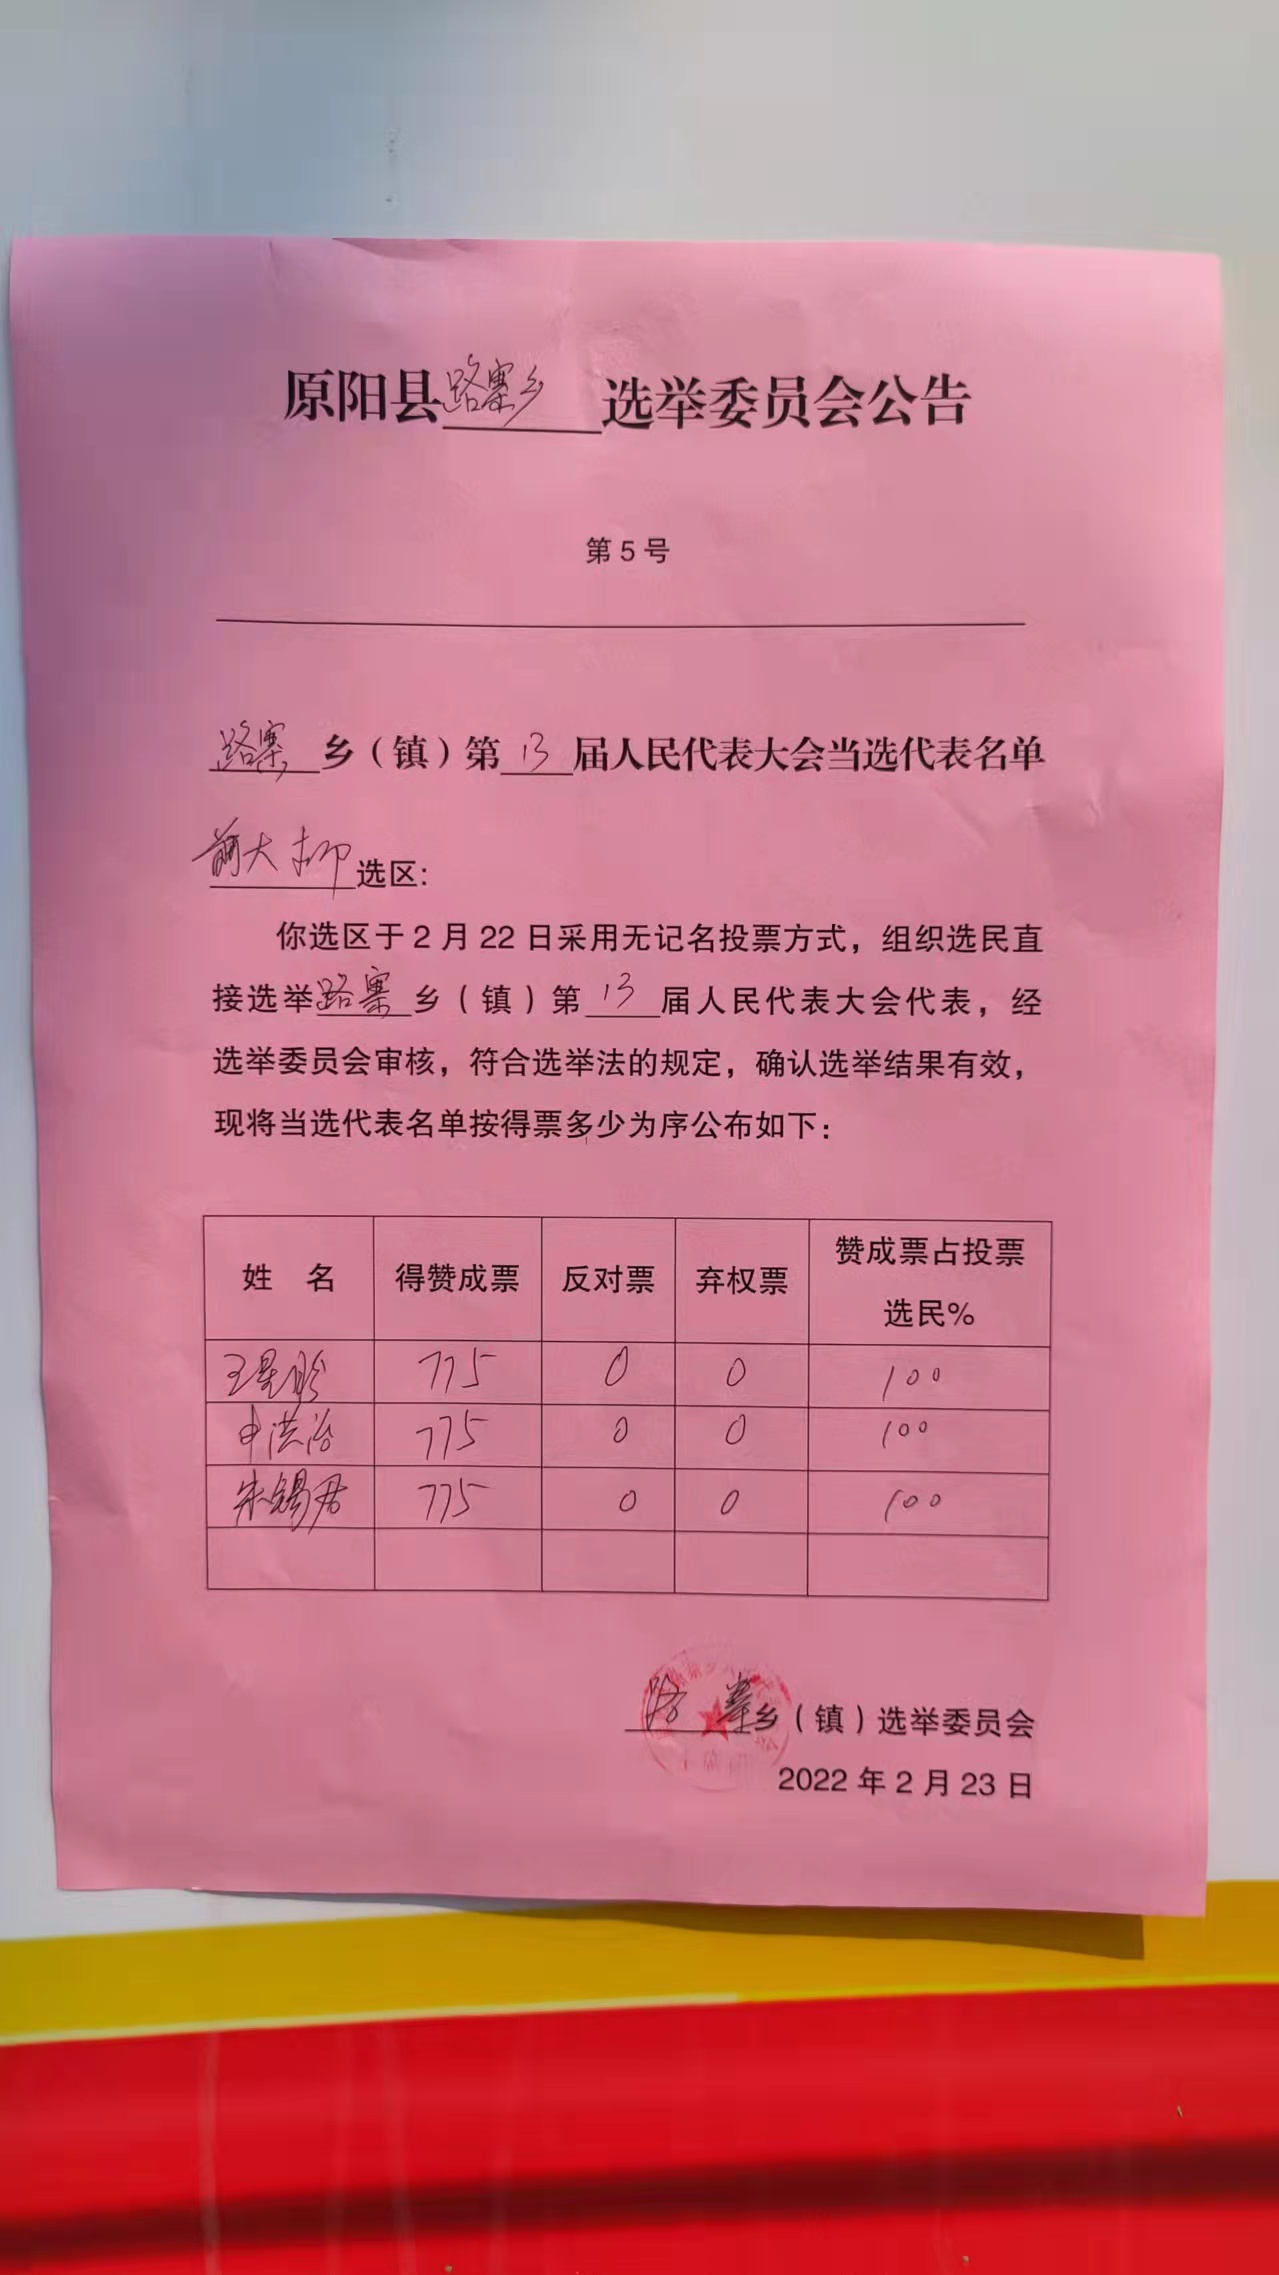 原阳县路寨乡选举委员会公告
第5号
路寨乡（镇）第13届人民代表大会当选代表名单
前大柳选区：
你选区于2月22日采用无记名投票方式，组织选民直
接选举路寨乡（镇）第13届人民代表大会代表，经
选举委员会审核，符合选举法的规定，确认选举结果有效，
现将当选代表名单按得票多少为序公布如下：
姓 名 得赞成票 反对票 弃权票 赞成票占投票
选民%
王 775 0 0 100
申洪 775 0 0 100
朱锡君 775 0 0 100
路寨乡（镇）选举委员会
2022年2月23日